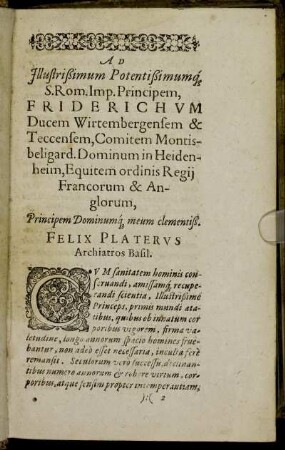 AD
Illustrißimum Potentißimumq́;
S. Rom. Imp. Principem,
FRIDERICHVM
Ducem Wirtembergensem &
Teccensem, Comitem Montis-
beligard. Dominum in Heiden-
heim, Equitem ordinis Regij
Francorum & An-
glorum,
Principem Dominumq́; meum clementiß.
FELIX PLATERVS
Archiatros Basil.
CVM sanitatem hominis con-
seruandi, amissamq́; recupe-
randi scientia, Illustrißime
Princeps, primis mundi æta-
tibus, quibus ob innatum cor
poribus vigorem, firma va-
letudine, longo annorum spacio homines frue-
bantur, non adeò esset necessaria, inculta ferè
remansit. Seculorum verò successu, declinan-
tibus numero annorum & robore virium, cor-
poribus, atque sensim propter intemperantiam,
):( 2